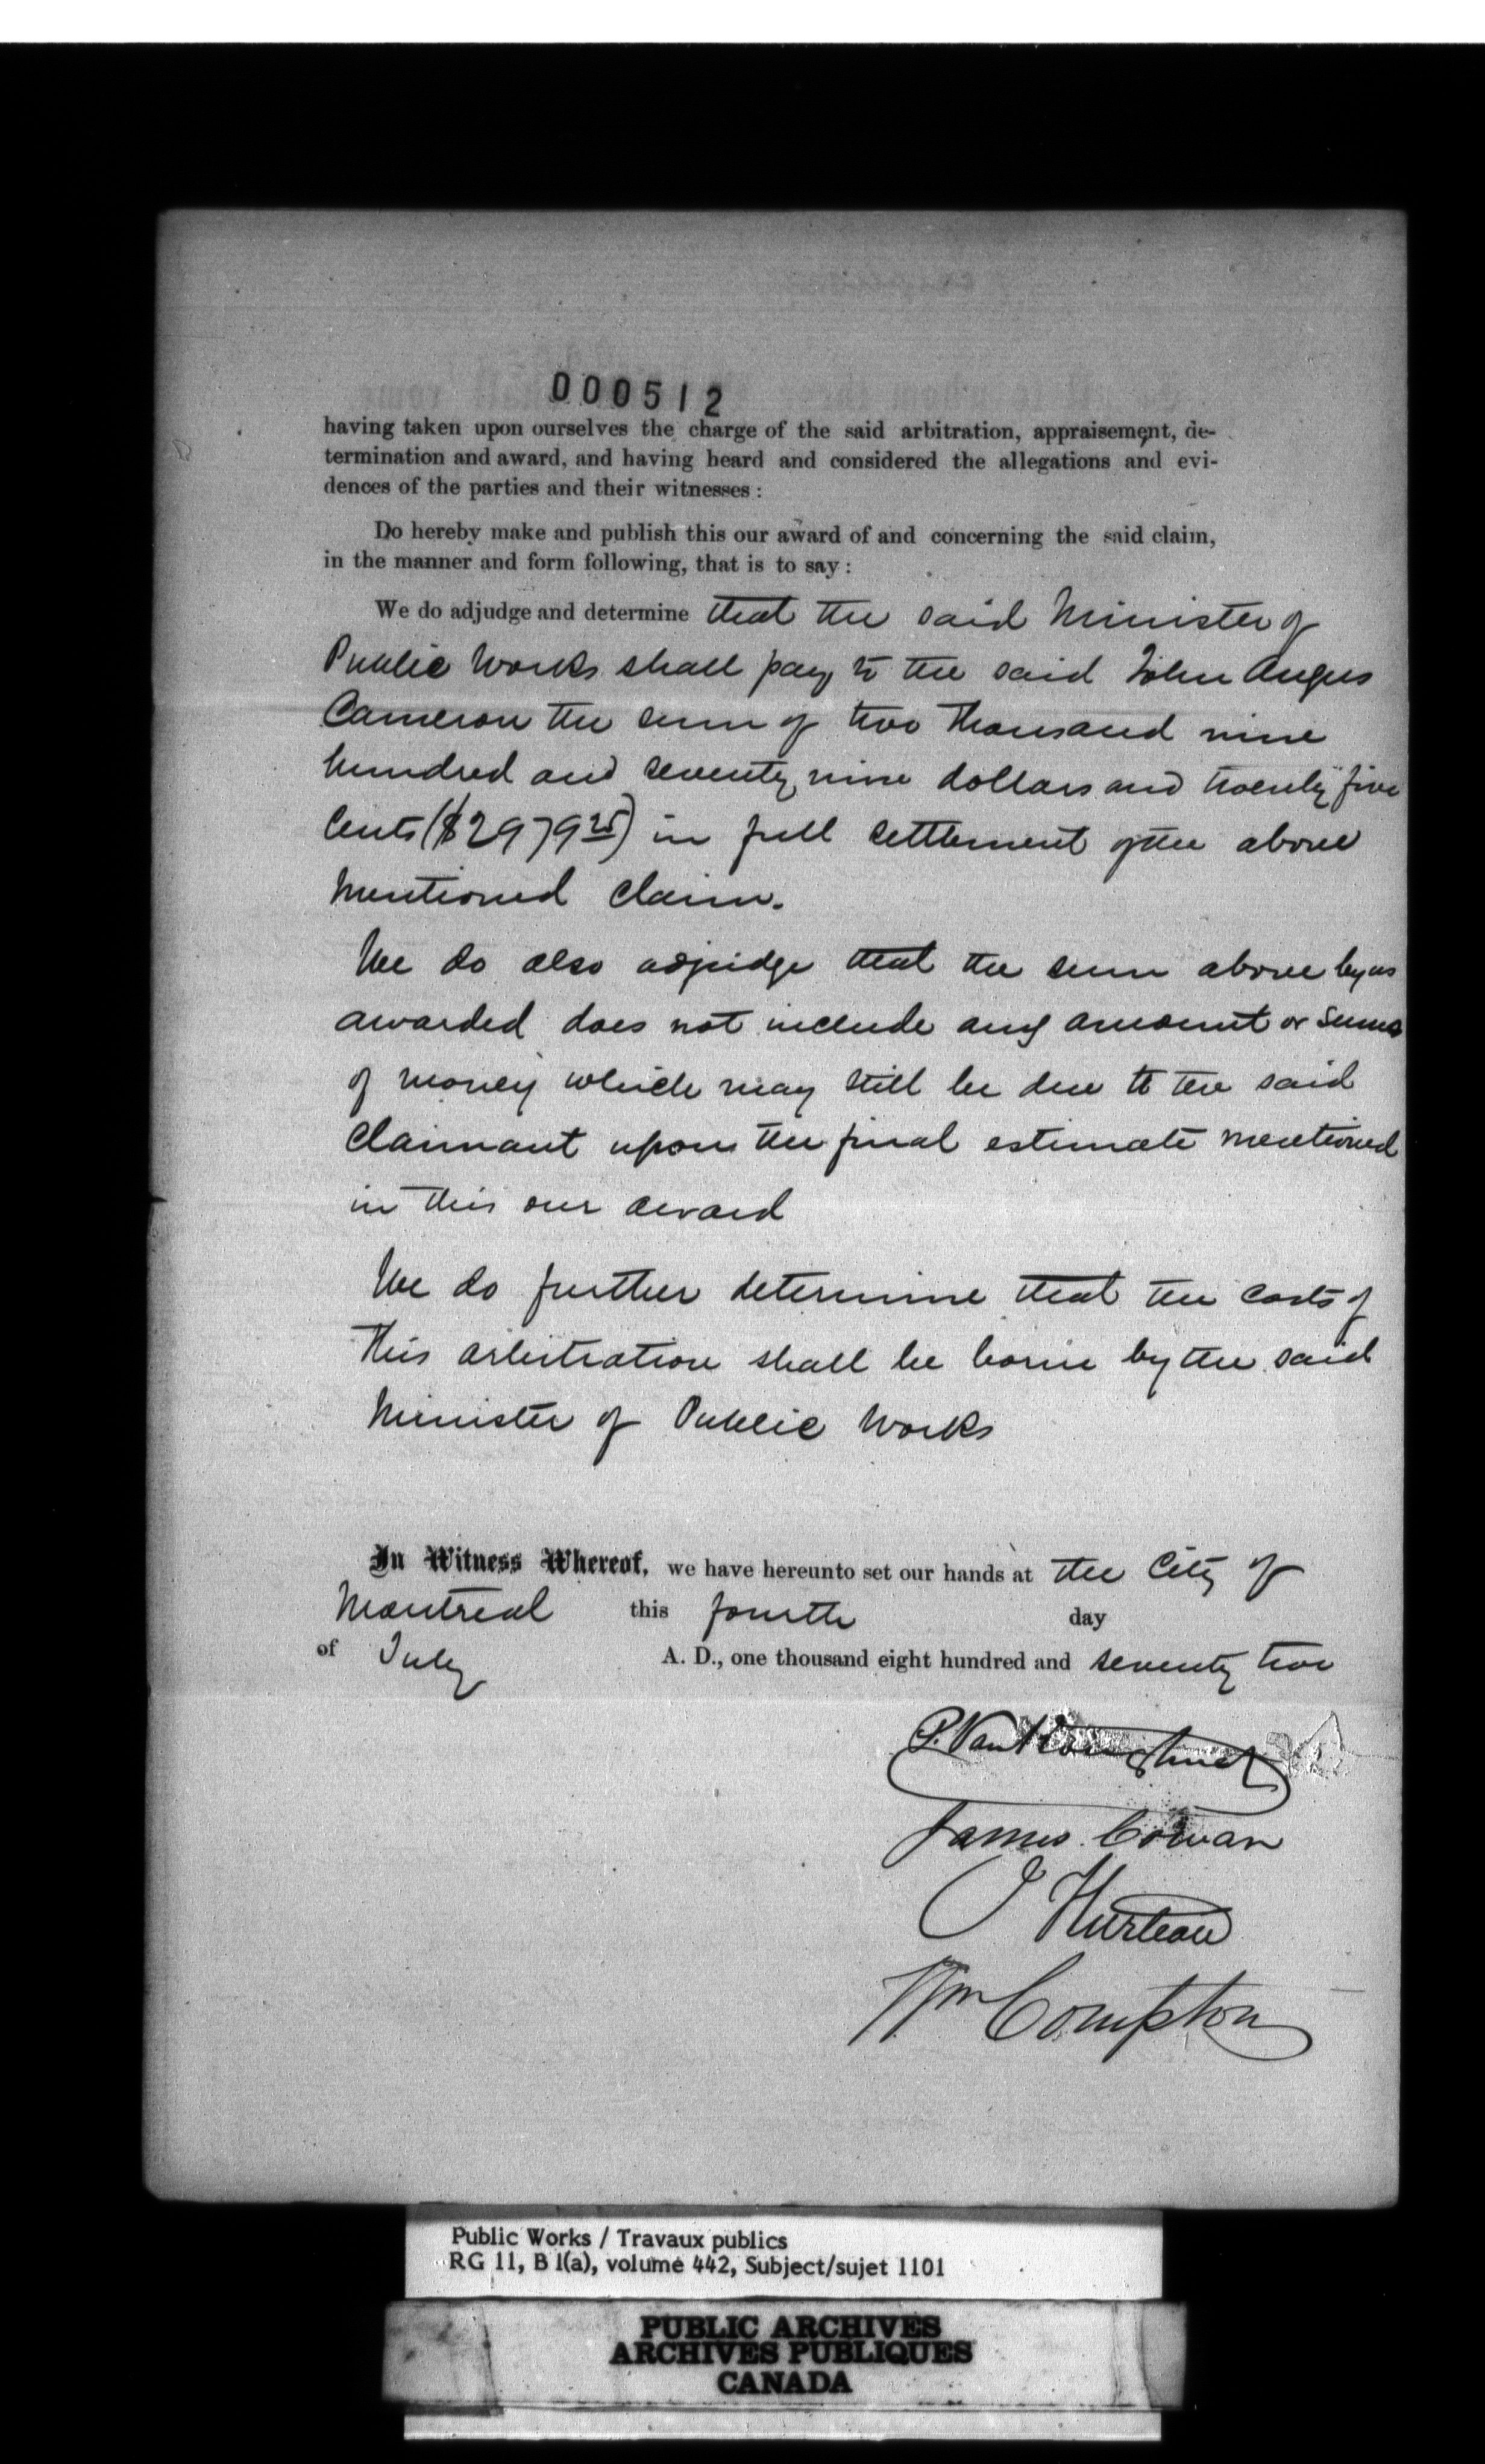 000512
having taken upon ourselves the charge of the said arbitration, appraisement, de-
termination and award, and having heard and considered the allegations and evi-
dences of the parties and their witnesses :
Do hereby make and publish this our award of and concerning the said claim,
in the manner and form following, that is to say :
We do adjudge and determine that the said Minister of
Public Works shall pay to the said John Angus
Cameron the sum of two thousand nine
hundred and seventy nine dollars and twenty five
Cents ($2979 25) in full settlement of the above
mentioned claim.
We do also adjudge that the sum above by us
awarded does not include any amount or sums
of money which may still be due to the said
Claimant upon the final estimate mentioned
in this our award
We do further determine that the costs of
this arbitration shall be borne by the said
Minister of Public Works
In Witness Whereof, we have hereunto set our hands at the City of
Montreal this fourth day
of July A. D., one thousand eight hundred and seventy two
P. VanKoughnet
James Cowan
J Hurteau
Wm Compton
Public Works / Travaux publics
RG 11, B 1(a), volume 442, Subject/sujet 1101
PUBLIC ARCHIVES
ARCHIVES PUBLIQUES
CANADA